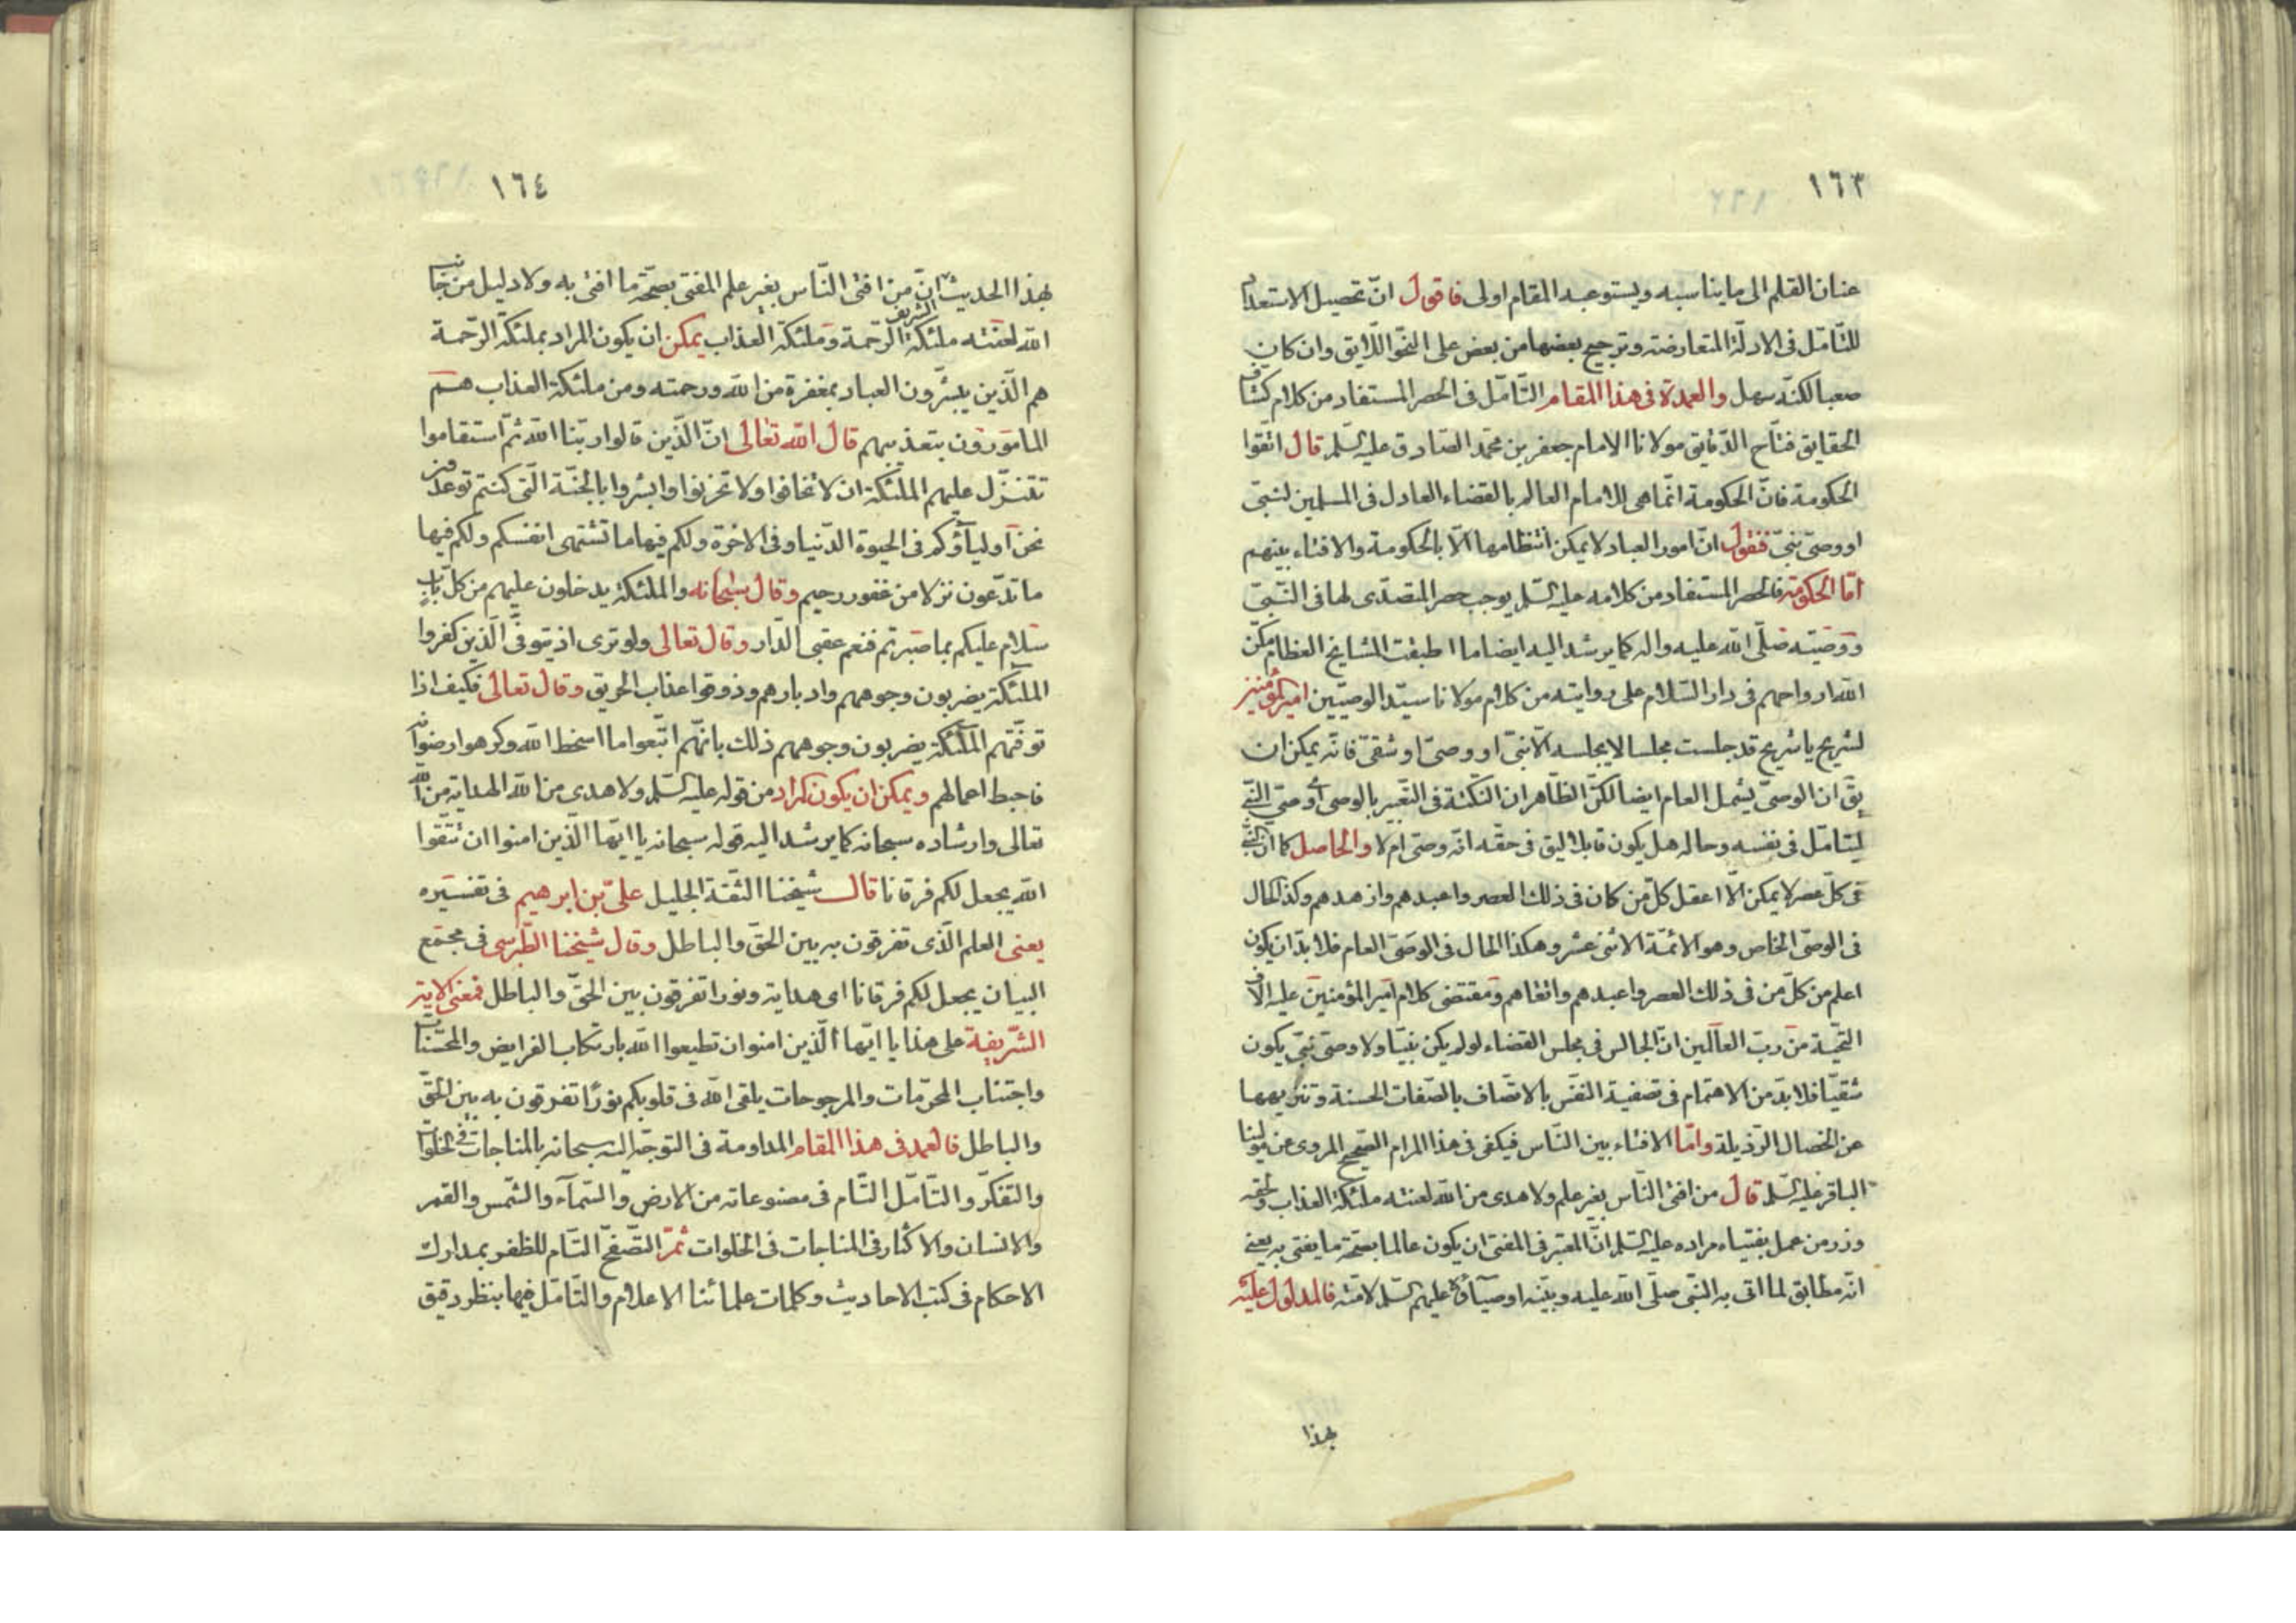 ١٦٣
عنان القلم الى ما يناسبه ويستوعبه المقام اولى فاقول انّ تحصيل الاستعداد
للتّامّل فى الادلّة المتعارضة وترجيح بعضها من بعض على النحو اللّايق وان كان
صعبا لكنّه سهل والعمدة فى هذا المقام التّامّل فى الحصر المستفاد من كلام كشّاف
الحقايق فتّاح الدّقايق مولانا الامام جعفر بن محمّد الصّادق عليه السّلم قال اتّقوا
الحكومة فانّ الحكومة انّما هى للامام العالم بالقضاء العادل فى المسلمين لنبىّ
او وصىّ نبىّ فنقول انّ امور العباد لا يمكن انتظامها الّا بالحكومة والافتاء بينهم
امّا الحكومة فالحصر المستفاد من كلامه عليه السّلم يوجب حصر المتصدّى لها فى النّبىّ
ووصيّه صلّى الله عليه واله كما يرشد اليه ايضا ما اطبقت المشايخ العظام مكّن
الله ارواحهم فى دار السّلام على روايته من كلام مولانا سيّد الوصيّين امير المؤمنين
لشريح يا شريح قد جلست مجلسا لا يجلسه الّا نبىّ او وصىّ او شقىّ فانّه يمكن ان
يقّ ان الوصىّ يشمل العام ايضا لكنّ الظّاهر ان النكتة فى التّعبير بالوصى او وصىّ النّبىّ
ليتامّل فى نفسه وحاله هل يكون قابلا لايق فى حقّه انّه وصىّ ام لا والحاصل كما ان النبىّ
فى كلّ عصر لا يمكن الّا اعقل كلّ من كان فى ذلك العصر واعبدهم وازهدهم وكذا الحال
فى الوصىّ الخاص وهو الائمّة الاثنى عشر وهكذا الحال فى الوصىّ العام فلا بدّ ان يكون
اعلم من كلّ من فى ذلك العصر واعبدهم واتقاهم ومقتضى كلام امير المؤمنين عليه الاف
التّحيّة من ربّ العالمين انّ الجالس فى مجلس القضاء لو لم يكن نبيّا ولا وصىّ نبىّ يكون
شقيّا فلا بدّ من الاهتمام فى تصفية النّفس بالاتّصاف بالصّفات الحسنة وتنزيهها
عن الخصال الرّذيلة وامّا الافتاء بين النّاس فيكفى فى هذا المرام الصّحيح المروى عن مولينا
الباقر عليه السّلم قال من افتى النّاس بغير علم ولا هدى من الله لعنته ملئكة العذاب ولحقه
وزر من عمل بفتياه مراده عليه السّلم انّ المعتبر فى المفتى ان يكون عالما بصحّة ما يفتى به يعنى
انّه مطابق لما اتى به النّبى صلّى الله عليه وبيّنه اوصيآؤه عليهم السّلم لامّته فالمدلول عليه
بهذا
١٦٤
بهذا الحديث الشريف انّ من افتى النّاس بغير علم المفتى بصحّة ما افتى به ولا دليل من جانب
الله لعنته ملئكة الرّحمة وملئكة العذاب يمكن ان يكون المراد بملئكة الرّحمة
هم الّذين يبشّرون العباد بمغفرة من الله ورحمته ومن ملئكة العذاب هم
المامورون بتعذيبهم قال الله تعالى انّ الّذين قالوا ربّنا الله ثمّ استقاموا
تتنزّل عليهم الملئكة ان لا تخافوا ولا تحزنوا وابشروا بالجنّة الّتى كنتم توعدون
نحن اوليآؤكم فى الحيوة الدّنيا وفى الاخرة ولكم فيها ما تشتهى انفسكم ولكم فيها
ما تدّعون نزلا من غفور رحيم وقال سبحانه والملئكة يدخلون عليهم من كلّ باب
سلام عليكم بما صبرتم فنعم عقبى الدّار وقال تعالى ولو ترى اذ يتوفّى الّذين كفروا
الملئكة يضربون وجوههم وادبارهم وذوقوا عذاب الحريق وقال تعالى فكيف اذا
توفّتهم الملئكة يضربون وجوههم ذلك بانّهم اتّبعوا ما اسخط الله وكرهوا رضوانه
فاحبط اعمالهم ويمكن ان يكون المراد من قوله عليه السّلم ولا هدى من الله الهداية من الله
تعالى وارشاده سبحانه كما يرشد اليه قوله سبحانه يا ايّها الّذين امنوا ان تتّقوا
الله يجعل لكم فرقانا قال شيخنا الثّقة الجليل علىّ بن ابرهيم فى تفسيره
يعنى العلم الّذى تفرقون به بين الحقّ والباطل وقال شيخنا الطّبرسى فى مجمع
البيان يجعل لكم فرقانا اى هداية ونورا تفرقون بين الحقّ والباطل فمعنى الاية
الشّريفة على هذا يا ايّها الّذين امنوا ان تطيعوا الله بارتكاب الفرايض والمحسّنات
واجتناب المحرّمات والمرجوحات يلقى الله فى قلوبكم نورًا تفرقون به بين الحقّ
والباطل فالعمدة فى هذا المقام المداومة فى التوجّه اليه سبحانه بالمناجات فى الخلوات
والتفكّر والتّامّل التّام فى مصنوعاته من الارض والسّمآء والشّمس والقمر
والانسان والاكثار فى المناجات فى الخلوات ثمّ التّصفّح التّام للظفر بمدارك
الاحكام فى كتب الاحاديث وكلمات علمائنا الاعلام والتّامّل فيها بنظر دقيق